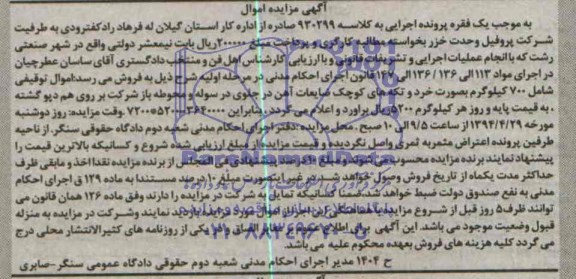 آگهی مزایده اموال
به موجب یک فقره پرونده اجرایی به کلاسه ۹۳۰۲۹۹ صادره از اداره کار استان گیلان له فرهاد رادکفترودی به طرفیت
شرکت پروفیل وحدت خزر بخواسته مطالبه کارگری و پرداخت مبلغ ریال بابت نیمعشر دولتی واقع در شهر صنعتی
رشت که با انجام عملیات اجرایی و تشریفات قانونی و با ارزیابی کارشناس اهل فن و منتخب دادگستری آقای ساسان عطرچیان
در اجرای مواد ۱۱۳ الی ۱۳۶ / ۱۳۶ الی ۱۴۷ قانون اجرای احکام مدنی در مرحله اولیه شرح ذیل به فروش می رسد: اموال توقیفی
شامل ۷۰۰ کیلوگرم بصورت خرد و تکه های کوچک ضایعات آهن در جلوی در سوله و محوطه باز شرکت بر روی هم دپو گشته
، به قیمت پایه و روز هر کیلوگرم ۵۲۰۰ ریال براورد و اعلام می گردد. بنابراین وقت مزایده: روز دوشنبه
مورخه ۱۳۹۴/۴/۲۹ از ساعت ۹/۵ الی ۱۰ صبح. محل مزایده دفتر اجرای احکام مدنی شعبه دوم دادگاه حقوقی سنگر. از ناحیه
طرفین پرونده اعتراض مثمربه ثمری واصل نگردیده و قیمت مزایده از مبلغ ارزیابی شده شروع و کسانیکه بالاترین قیمت را
پیشنهاد نمایند برنده مزایده محسوب می شوند و مبلغ ۱۰ درصد پیشنهادی فی المجلس از برنده مزایده نقدا اخذ و مابقی ظرف
حداکثر مدت یکماه از تاریخ فروش وصول خواهد شد در غیر اینصورت مبلغ ۱۰ درصد مستندا به ماده ۱۲۹ ق اجرای احکام
مدنی به نفع صندوق دولت ضبط خواهد شد. ضمنا کسانیکه تمایل به شرکت در مزایده را دارند وفق ماده ۱۲۶ همان قانون می
توانند ظرف ۵ روز قبل از شروع مزایده با هماهنگی این اجرا از اموال مورد مزایده بازدید نمایند و شرکت در مزایده به منزله
قبول وضعیت موجود می باشد. این آگهی برای اطلاع عموم الصاق و در یکی از روزنامه های کثیرالانتشار محلی درج
می گردد کلیه هزینه های فروش بعهده محکوم علیه می باشد.
ح ۱۴۰۴ مدیر اجرای احکام مدنی شعبه دوم حقوقی دادگاه عمومی سنگر-صابری